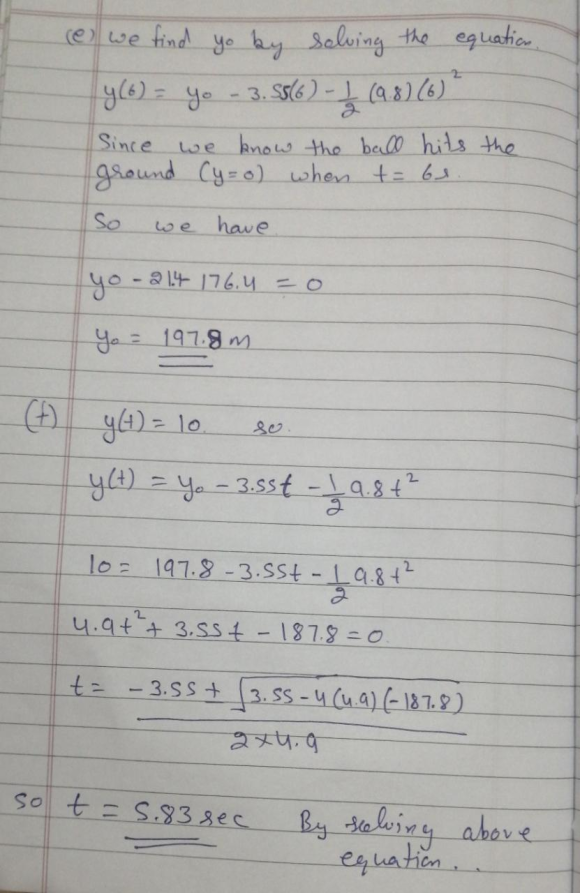 (e) we find yo by solving the equation.
y(6) = yo - 3.55(6) - 1/2 (9.8)(6)²
Since we know the ball hits the
ground (y=0) when t = 6s.
So we have
yo - 21.4 176.4 = 0
yo = 197.8 m
(f) y(t) = 10. so.
y(t) = yo - 3.55t - 1/2 9.8t²
10 = 197.8 - 3.55t - 1/2 9.8t²
4.9t² + 3.55t - 187.8 = 0.
t = -3.55 ± √3.55 - 4(4.9)(-187.8)
2×4.9
so t = 5.83 sec By solving above
equation...